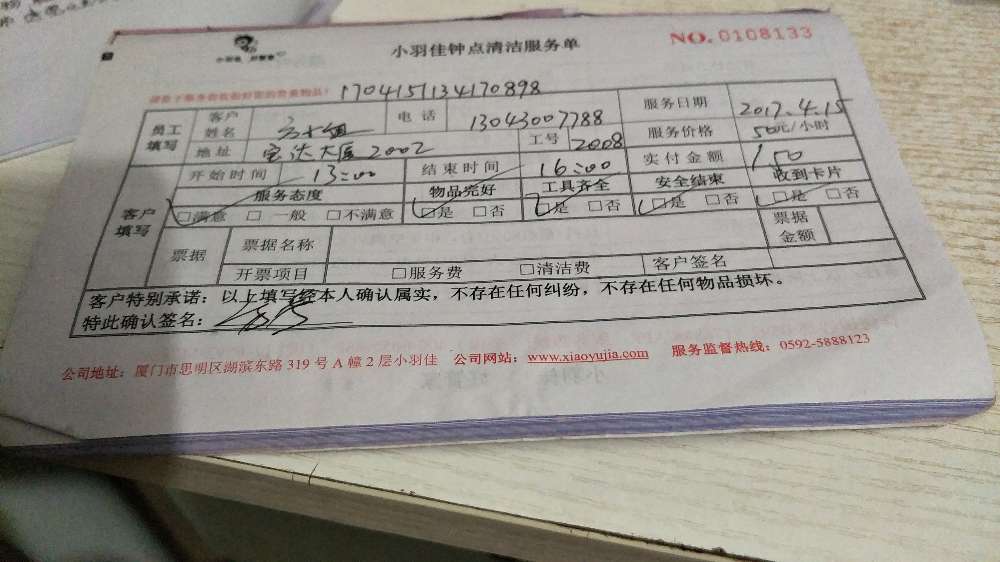 小羽佳钟点清洁服务单
NO. 0108133
小羽佳
1704151134170898
员工填写
客户姓名
电话 13043007788
服务日期 2017.4.15
地址 宝达大厦2002
工号 2008
服务价格 50元/小时
开始时间 13:00
结束时间 16:00
实付金额 150
客户填写
服务态度 物品完好 工具齐全 安全结束 收到卡片
□满意 □一般 □不满意 □是 □否 □是 □否 □是 □否 □是 □否
票据
票据名称
票据金额
开票项目 □服务费 □清洁费 客户签名
客户特别承诺：以上填写经本人确认属实，不存在任何纠纷，不存在任何物品损坏。
特此确认签名：
公司地址：厦门市思明区湖滨东路319号A幢2层小羽佳 公司网站：www.xiaoyujia.com 服务监督热线：0592-5888123